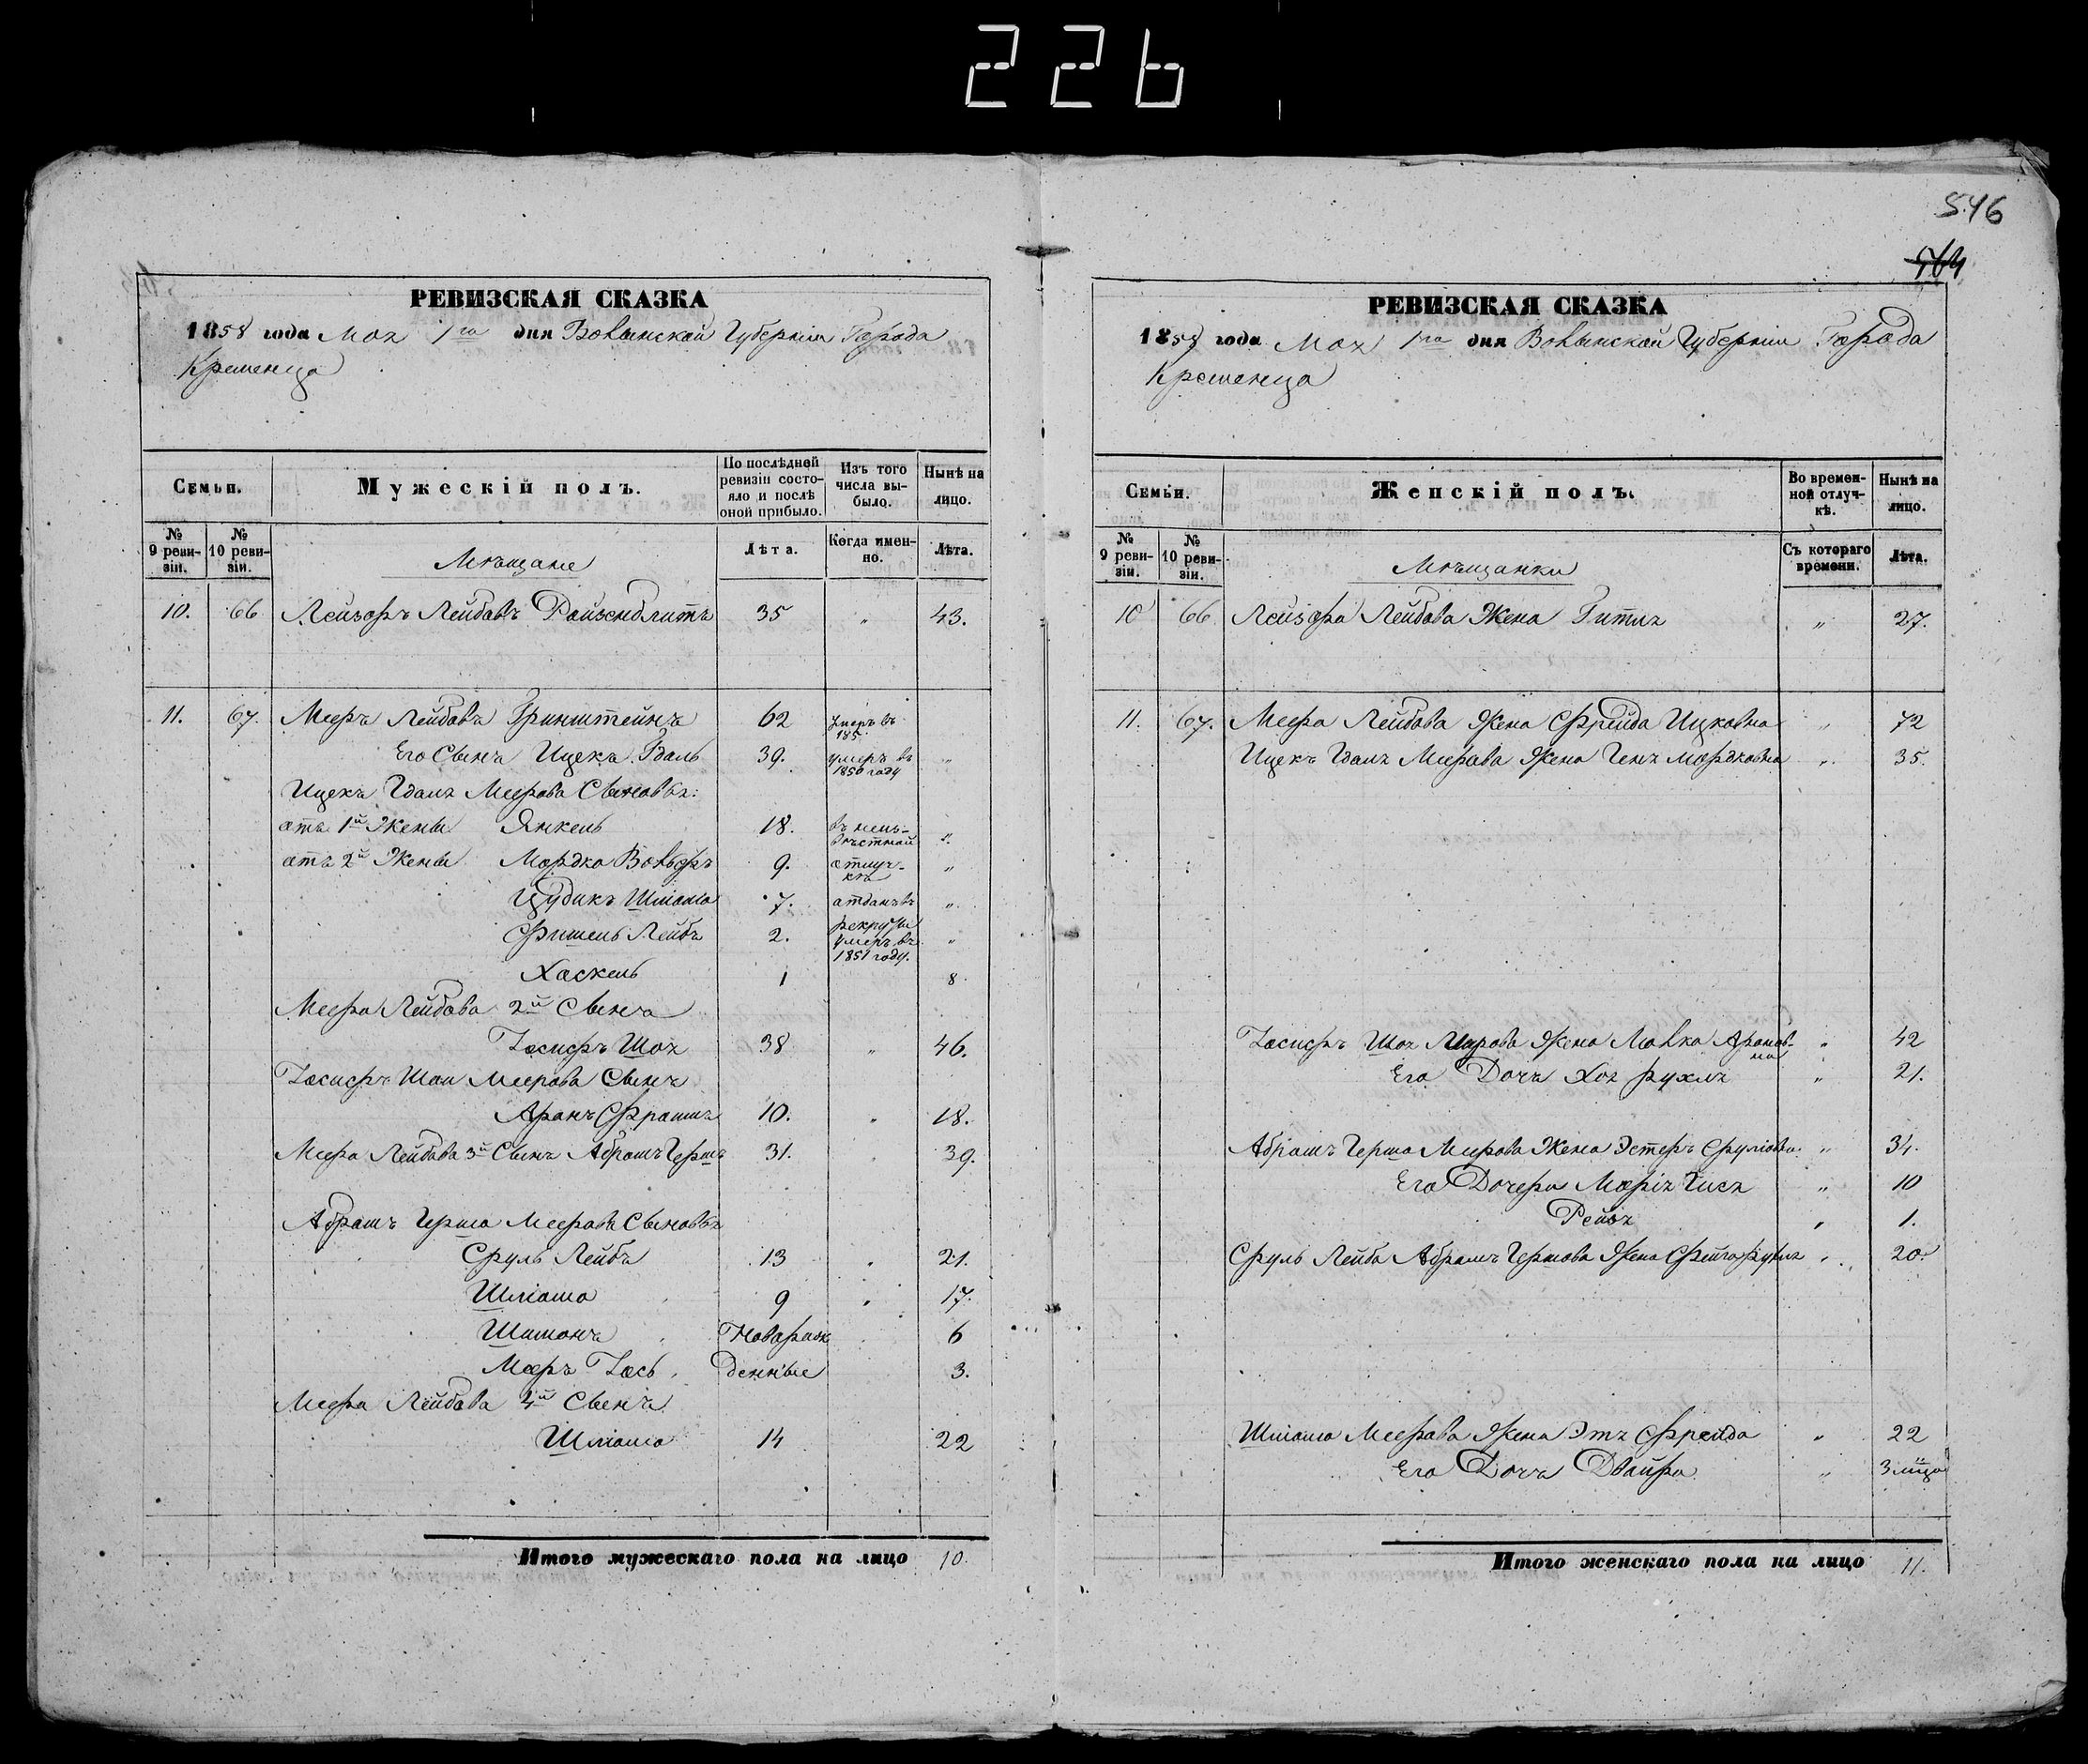 226
546
564
РЕВИЗСКАЯ СКАЗКА
1858 года Мая 1го дня Волынской Губернiи Города
Кременца
Семьи.
Мужескiй полъ.
По послѣдней ревизiи состояло и послѣ оной прибыло.
Изъ того числа выбыло.
Нынѣ на лицо.
№ 9 ревизiи.
№ 10 ревизiи.
Мѣщане
Лѣта.
Когда именно.
Лѣта.
10. 66 Лейзоръ Лейбовъ Ройзенблитъ 35 „ 43.
11. 67. Мееръ Лейбовъ Гринштейнъ 62 Умеръ въ 185
Его Сынъ Ицекъ Гдаль 39. умеръ въ 1850 году „
Ицекъ Гдаля Меерова Сыновья:
отъ 1й Жены Янкель 18. въ неизвѣстной „
отъ 2й Жены Мордко Вольфъ 9. отлучкѣ „
Цудикъ Шліома 7. отданъ въ рекруты „
Фишель Лейбъ 2. Умеръ въ 1851 году. „
Хаскель 1 8
Меера Лейбова 2й Сынъ
Іосифъ Шоя 38 „ 46.
Іосифъ Шои Меерова Сынъ
Аронъ Фроимъ 10. „ 18.
Меера Лейбова 3й Сынъ Абрамъ Гершъ 31. „ 39.
Абрамъ Герша Меерова Сыновья
Сруль Лейбъ 13 „ 21.
Шліома 9 „ 17.
Шимонъ Новорож 6
Мееръ Іось денные 3.
Меера Лейбова 4й Сынъ
Шліома 14 22
Итого мужескаго пола на лицо 10.
РЕВИЗСКАЯ СКАЗКА
1858 года Мая 1го дня Волынской Губернiи Города
Кременца
Семьи.
Женскiй полъ.
Во временной отлучкѣ.
Нынѣ на лицо.
№ 9 ревизiи.
№ 10 ревизiи.
Мѣщанки
Съ котораго времени.
Лѣта.
10 66. Лейзора Лейбова Жена Гитля „ 27.
11. 67. Меера Лейбова Жена Фрейда Ицковна „ 72
Ицекъ Гдаля Меерова Жена Геня Мордковна „ 35.
Іосифъ Шоя Меерова Жена Малка Ароновна „ 42
Его Дочь Хая Рухля „ 21.
Абрамъ Герша Меерова Жена Эстеръ Сруліовна „ 34.
Его Дочери Марiя Гися „ 10
Рейзя „ 1.
Сруль Лейба Абрамъ Гершова Жена Фейга Рухля „ 20.
Шліома Меерова Жена Этя Фрейда „ 22
Его Дочь Двойра „ 3 мца
Итого женскаго пола на лицо 11.